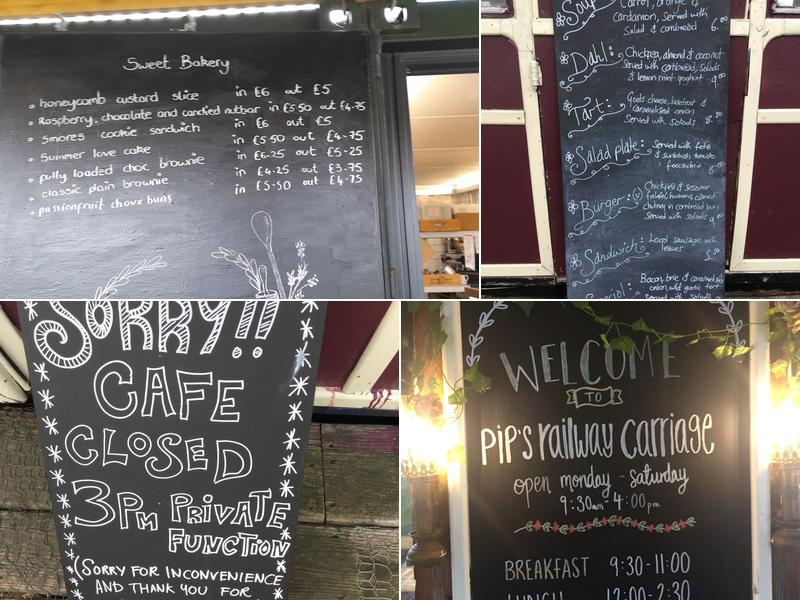 Sweet Bakery
honeycomb custard slice in £6 out £5
Raspberry, chocolate and candied nutbar in £5.50 out £4.75
Smores cookie sandwich in £6 out £5
Summer love cake in £5.50 out £4.75
fully loaded choc brownie in £6.25 out £5.25
classic plain brownie in £4.25 out £3.75
passionfruit choux buns in £5.50 out £4.75
Soup: Carrot, orange &
cardamon, served with
salad & cornbread 6.
Dahl: Chickpea, almond & coconut
served with cornbread, salads
& lemon mint yoghurt 9.
Tart: Goats cheese, beetroot &
caramelised onion
Served with salads 8.
Salad plate: Served with feta
& sunblush tomato
foccachia 8.
Burger: (v) Chickpea & sesame
falafel, hummus, carrot
chutney in cornbread bun
Served with salads 9.
Sandwich: Local sausage with
leaves 5.
Special: Bacon, brie & caramelised
onion, wild garlic tart
Served with salads
SORRY!!
CAFE
CLOSED
3PM PRIVATE
FUNCTION
(SORRY FOR INCONVENIENCE
AND THANK YOU FOR
WELCOME
TO
PiP's railway carriage
open monday - saturday
9:30am - 4:00pm
BREAKFAST 9:30-11:00
LUNCH 12:00-2:30